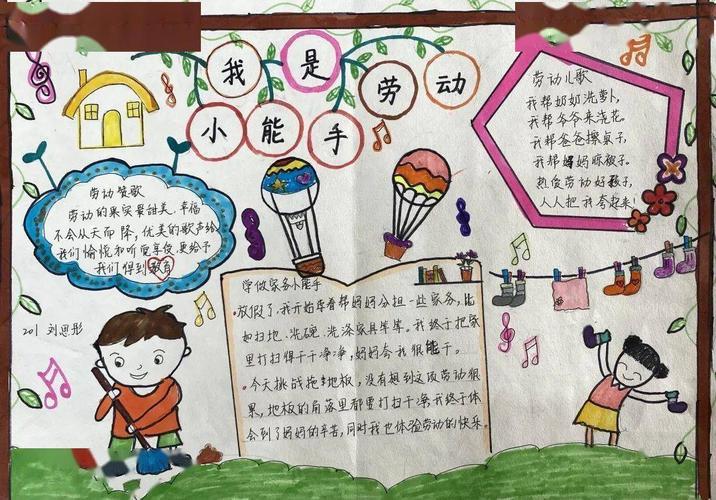 我是劳动
小能手
劳动赞歌
劳动的果实最甜美.幸福
不会从天而降,优美的歌声给
我们愉悦和听觉享侵.更给予
我们得到教育
201 刘思彤
劳动儿歌
我帮奶奶洗萝卜,
我帮爷爷来浇花。
我帮爸爸擦桌子,
我帮妈妈晾被子。
热侵劳动好孩子,
人人把我夸起来!
学做家务小能手
放假了,我开始年看帮妈妈分担一些家务,比
如扫地.洗碗.洗涤家具等等。我终于把家
里打扫得干干净净,妈妈夸我很能干。
今天挑战拖地板,没有想到这项劳动很
累,地板的角落里都要打扫干净,我终于体
会到了妈妈的辛苦,同时我也体验劳动的快乐。